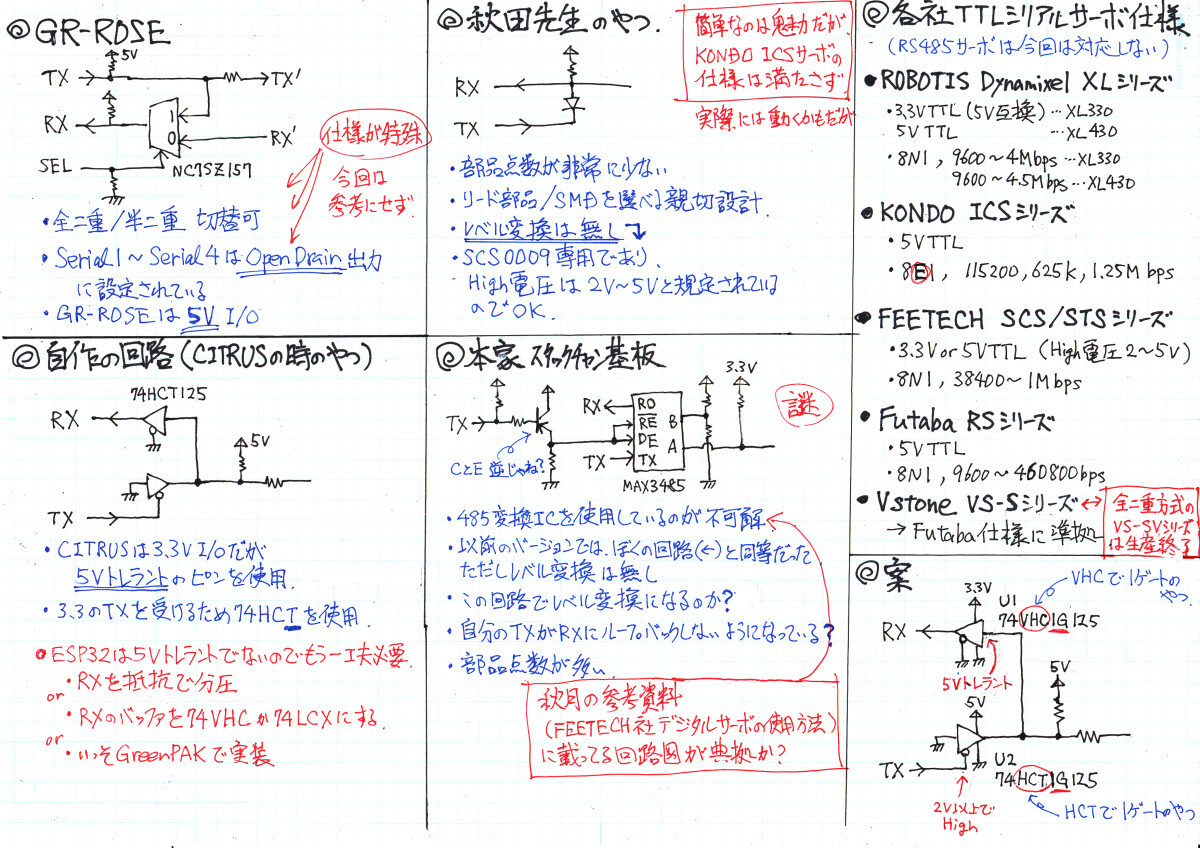 ◎GR-ROSE
5V
TX
TX'
RX
1
0
RX'
SEL
NC7SZ157
仕様が特殊
今回は
参考にせず.
・全二重/半二重 切替可
・Serial1～Serial4はOpen Drain出力
に設定されている
・GR-ROSEは5V I/O
◎秋田先生のやつ.
簡単なのは魅力だが、
KONDO ICSサーボの
仕様は満たさず.
実際には動くかもだが
RX
TX
・部品点数が非常に少ない
・リード部品/SMDを選べる親切設計.
・レベル変換は無し
・SCS0009専用であり、
High電圧は2V～5Vと規定されている
のでOK.
◎各社TTLシリアルサーボ仕様
(RS485サーボは今回は対応しない)
・ROBOTIS Dynamixel XLシリーズ
・3.3VTTL(5V互換)…XL330
5VTTL …XL430
・8N1, 9600～4Mbps…XL330
9600～4.5Mbps…XL430
・KONDO ICSシリーズ
・5VTTL
・8E1, 115200, 625k, 1.25Mbps
・FEETECH SCS/STSシリーズ
・3.3V or 5VTTL (High電圧2～5V)
・8N1, 38400～1Mbps
・Futaba RSシリーズ
・5VTTL
・8N1, 9600～460800bps
・Vstone VS-Sシリーズ
→Futaba仕様に準拠
全二重方式の
VS-SVシリーズ
は生産終了
◎自作の回路(CITRUSの時のやつ)
74HCT125
RX
5V
TX
・CITRUSは3.3V I/Oだが
5Vトレラントのピンを使用.
・3.3のTXを受けるため74HCTを使用.
◎ESP32は5Vトレラントでないのでもう一工夫必要.
・RXを抵抗で分圧
or
・RXのバッファを74VHCか74LCXにする.
or
・いっそGreenPAKで実装
◎本家 スタックチャン基板
3.3V
謎
TX
CとE逆じゃね?
RX
RO
RE
DE
TX
TX
B
A
MAX3485
・485変換ICを使用しているのが不可解
・以前のバージョンでは、ぼくの回路(←)と同等だった
ただしレベル変換は無し
・この回路でレベル変換になるのか?
・自分のTXがRXにループバックしないようになっている?
・部品点数が多い
秋月の参考資料
(FEETECH社デジタルサーボの使用方法)
に載ってる回路図が典拠か?
◎案
VHCで1ゲートの
やつ.
3.3V
U1
74VHC1G125
RX
5Vトレラント
5V
5V
TX
U2
74HCT1G125
2V以上で
High
HCTで1ゲートのやつ